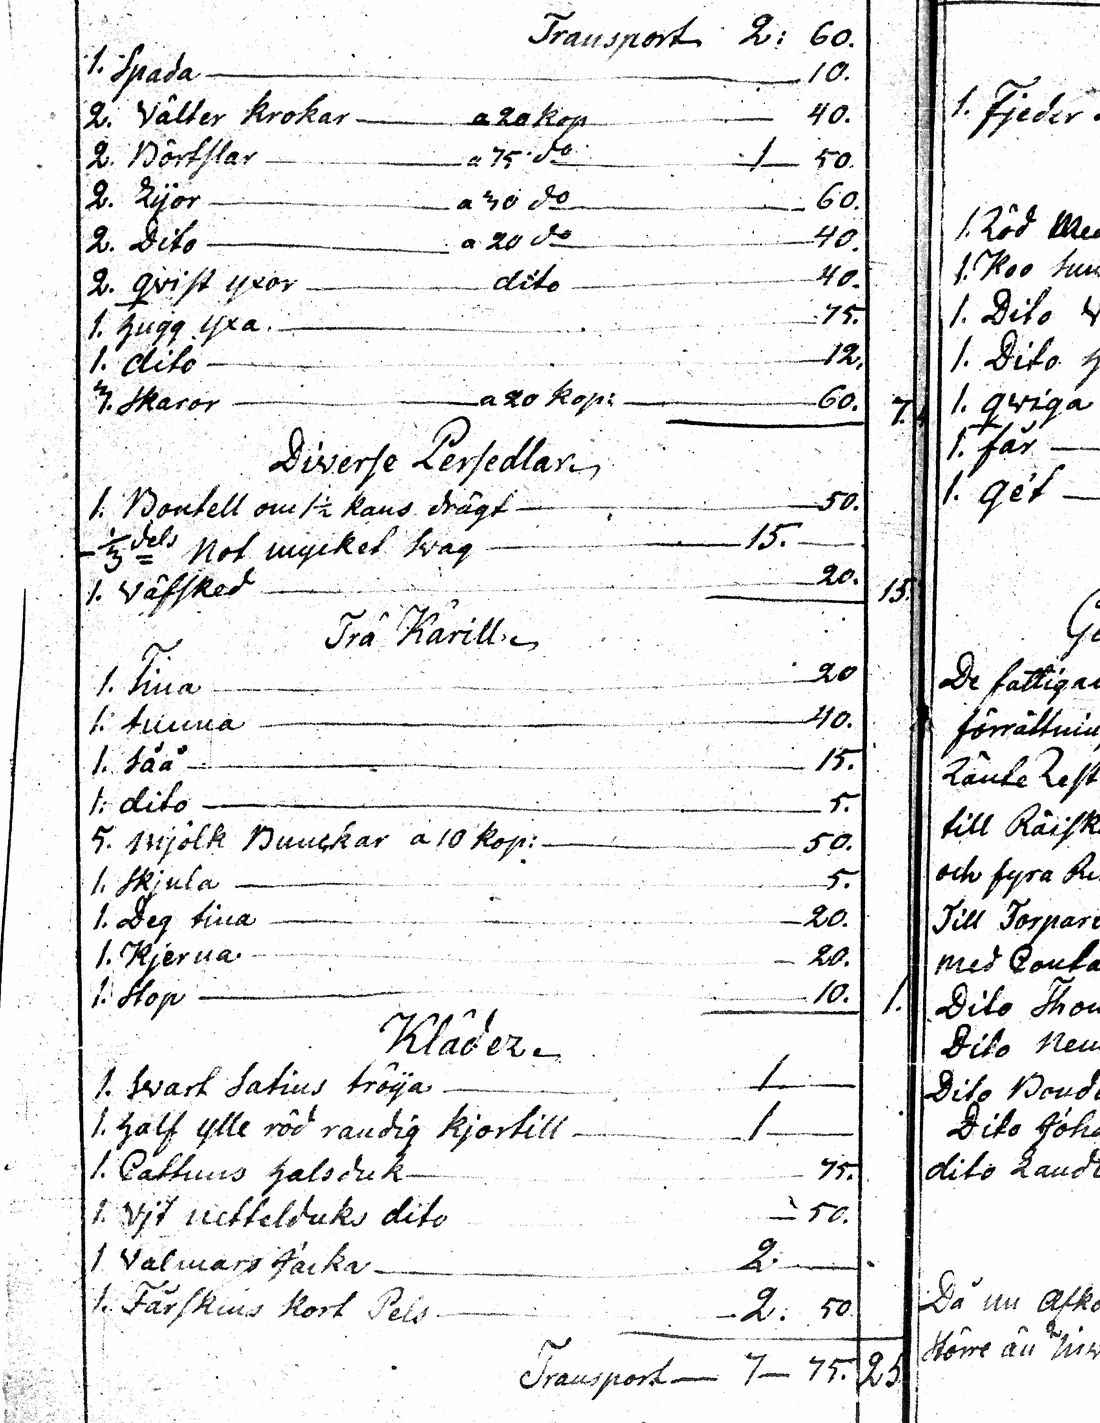 Transport 2: 60.
1. Spada 10.
2. Vålter krokar a 20 kop 40.
2. Börtslar a 75 do 1 50.
2. Lyor a 30 do 60.
2. Dito a 20 do 40.
2. qvist yxor dito 40.
1. hugg yxa. 75.
1. dito 12.
3. Skaror a 20 kop: 60. 7.
Diverse Persedlar
1. Boutell om 1½ kans drägt 50.
⅓ dels Not mycket Svag 15.
1. Väfsked 20. 15.
Trä Kärill
1. Tina 20
1. tunna 40.
1. Såå 15.
1. dito 5.
5. Mjölk Bunckar a 10 kop: 50.
1. Skjula 5.
1. Deg tina 20.
1. Kjerna 20.
1. Stop 10. 1.
Kläder
1. Svart Satins tröÿa 1
1. half ylle röd randig kjortill 1
1. Cattuns halsduk 75.
1. Vjt nettelduks dito 50.
1 Valmars Jacka 2.
1. Fårskins kort Pels 2: 50
Transport 7 75. 25
1. Fjeder
1. Röd
1. Koo
1. Dito
1. Dito
1. qwiga
1. får
1. gét
De fattigar
förrättnin
Ränte Rest
till
och fyra
Till Torpare
med
Dito Thom
Dito
Dito Bonde
Dito Joha
dito
Då nu
större än